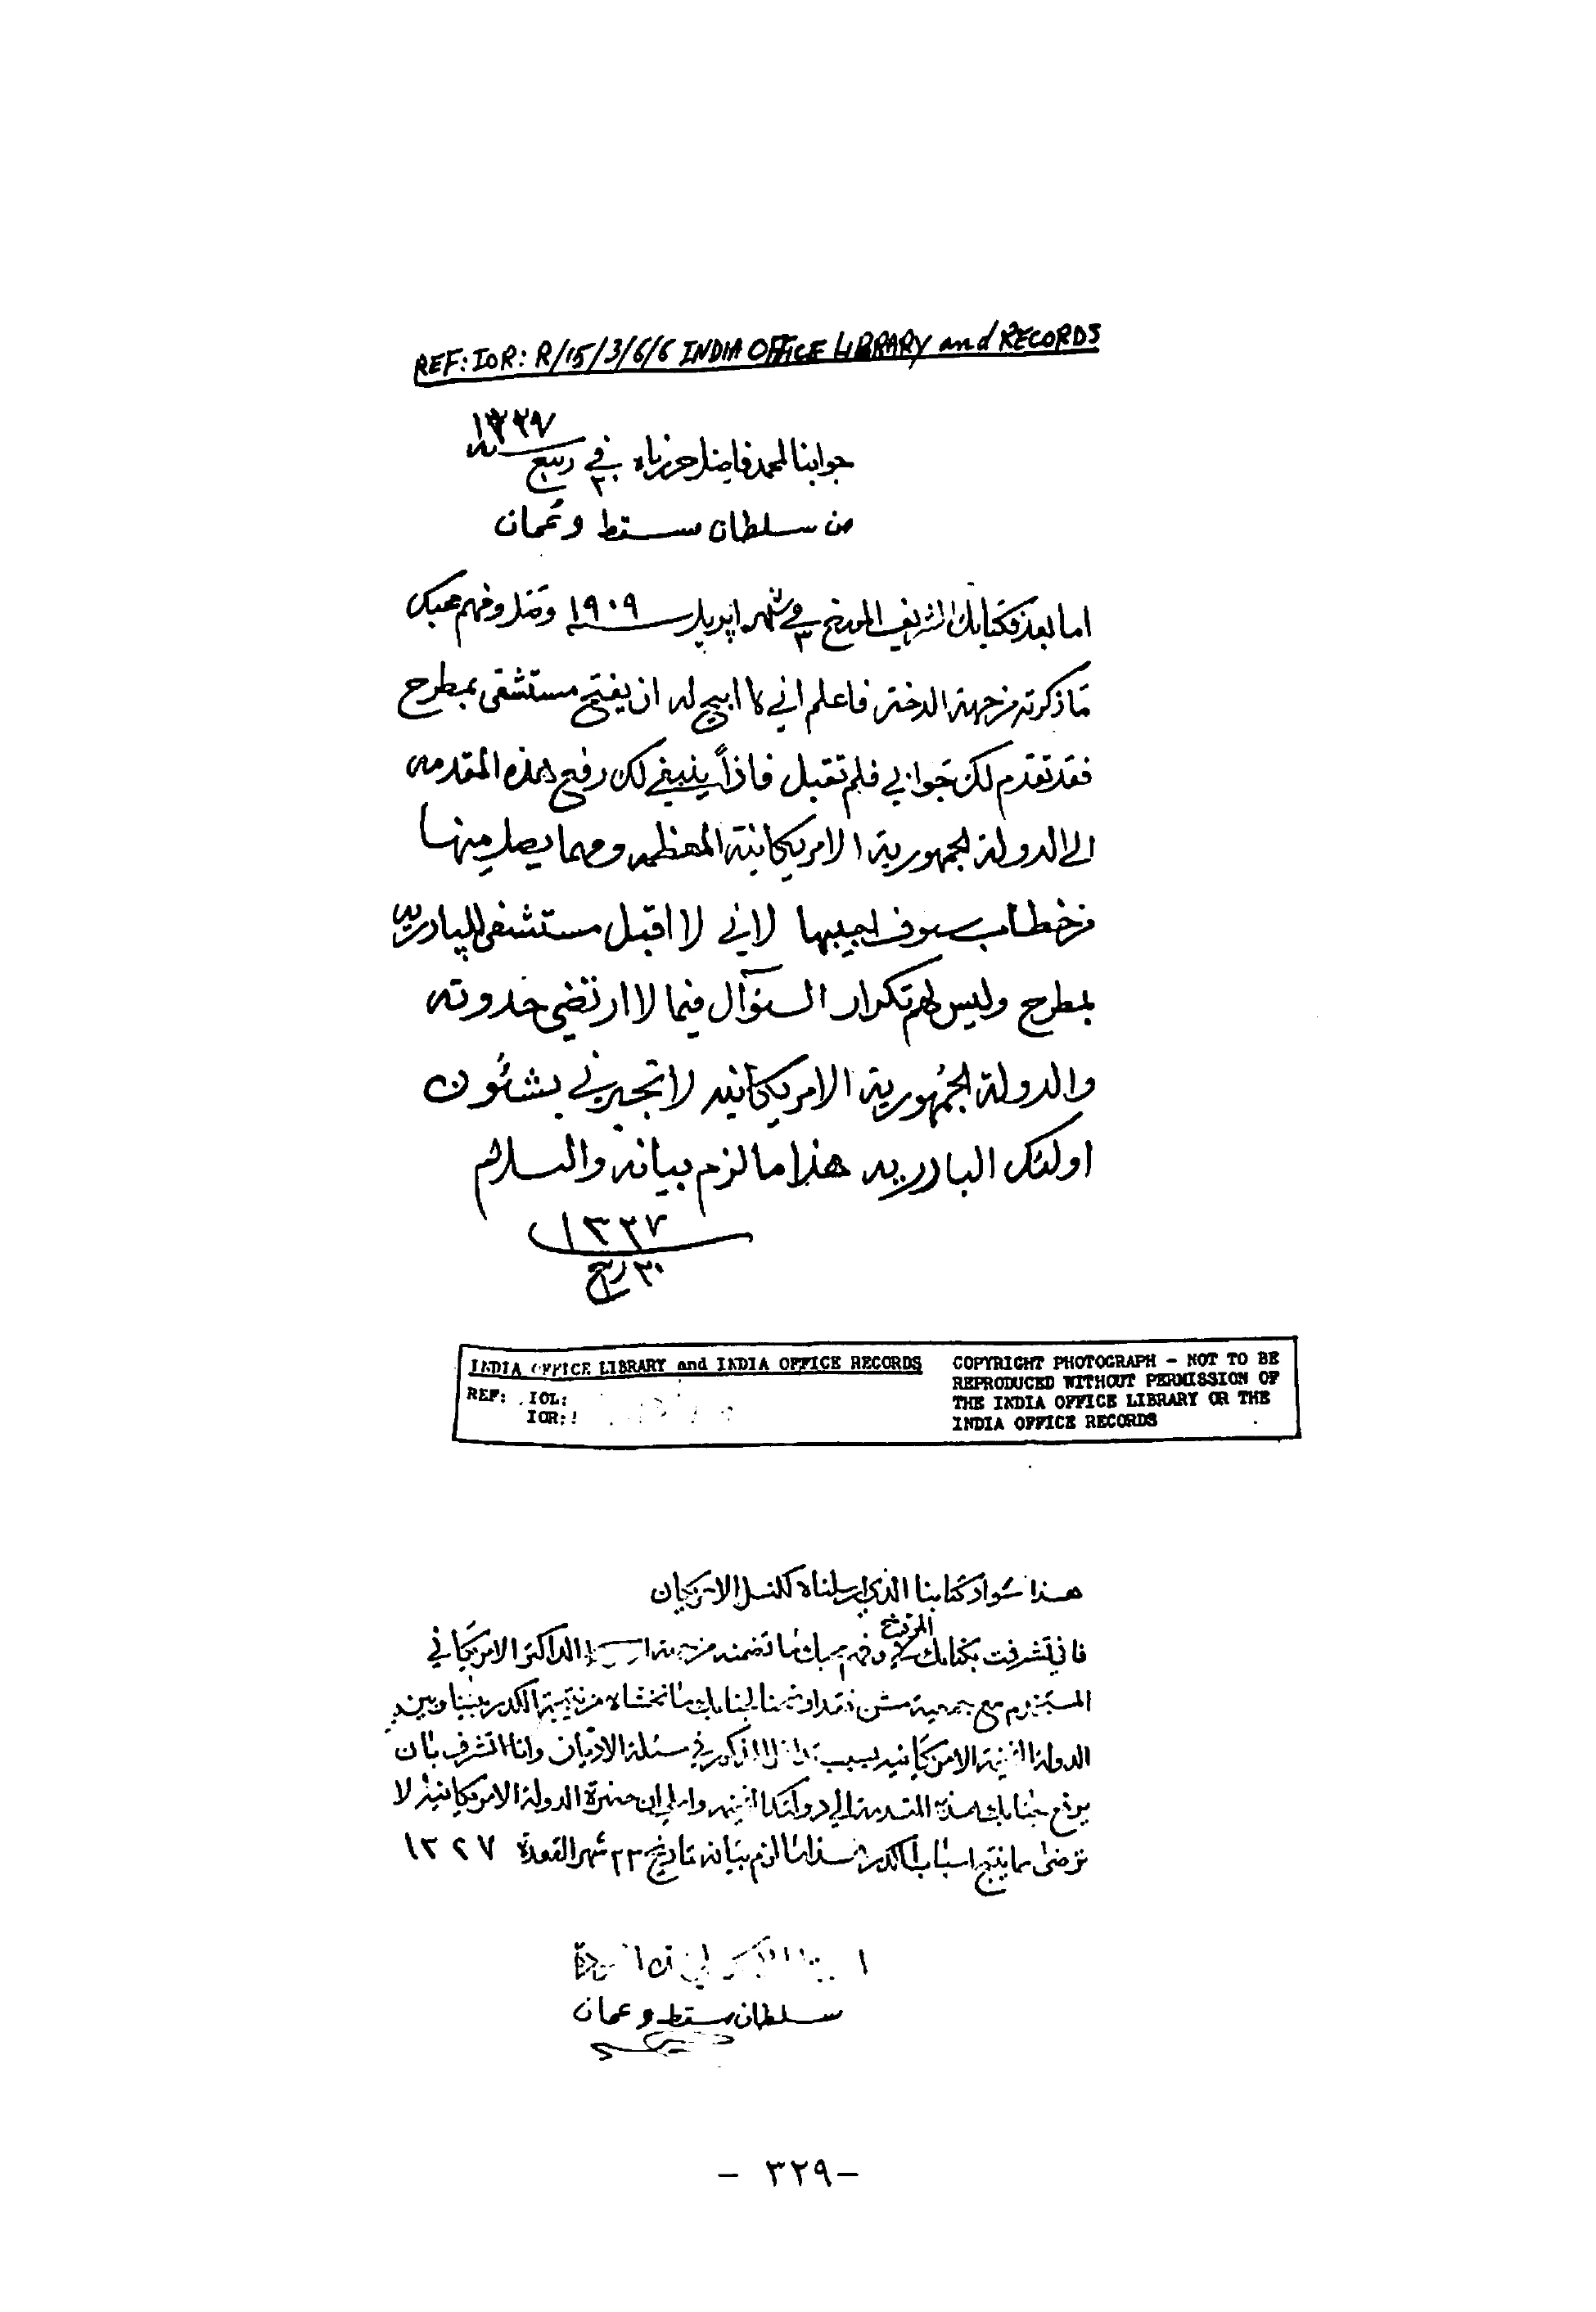 REF: IOR: R/15/3/6/6 INDIA OFFICE LIBRARY and RECORDS
١٣٢٧
جوابنا لمحمد فاضل حررناه في ٣٠ ربيع
من سلطان مسقط وعُمان
اما بعد فكتابك الشريف المورخ ٣ في شهر اپريل سنة ١٩٠٩ وصل وفهم محبك
ما ذكرته من جهة الدختر فاعلم اني لا ابيح له ان يفتح مستشفى بمطرح
فقد تقدم لك جوابي فلم تقبل فاذاً ينبغي لك رفع هذه المقدمه
الى الدولة الجمهورية الامريكانية المعظمه ومهما يصل منها
من خطاب سوف اجيبها لاني لا اقبل مستشفى للپادريه
بمطرح وليس لهم تكرار السؤآل فيما لا ارتضي حدوثه
والدولة الجمُهورية الامريكانيه لا تجبرني بشئون
اولئك البادريه هذا ما لزم بيانه والسلام
١٣٢٧
٣٠ ربيع
INDIA OFFICE LIBRARY and INDIA OFFICE RECORDS
REF: IOL:
IOR:
COPYRIGHT PHOTOGRAPH - NOT TO BE
REPRODUCED WITHOUT PERMISSION OF
THE INDIA OFFICE LIBRARY OR THE
INDIA OFFICE RECORDS
هذا سواد كتابنا الذي ارسلناه لكنسل الامريكان
فاني تشرفت بكتابك المورخ وفهم محبك ما تضمنه من جهة الداكتر الامريكاني
المستخدم مع جمعية مشن فقد لجنابك ما نخشاه من نتيجة الكدر بيننا وبين
الدولة الفخيمة الامريكانيه بسبب المذكور في مسئلة الاديان وانا اتشرف بان
يرفع جنابك هذه المقدمة الى دولتك الفخيمه واملي ان حضرة الدولة الامريكانية لا
ترضى بما ينتج اسباب الكدر هذا ما لزم بيانه تاريخ ٢٣ شهر القعدة ١٣٢٧
سلطان مسقط وعمان
- ٣٢٩ -